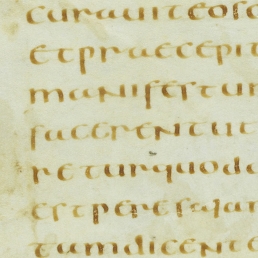 curauiteos
etpraecepit
manifestum
facerentut
returquodd
estperesaian
tumdicente